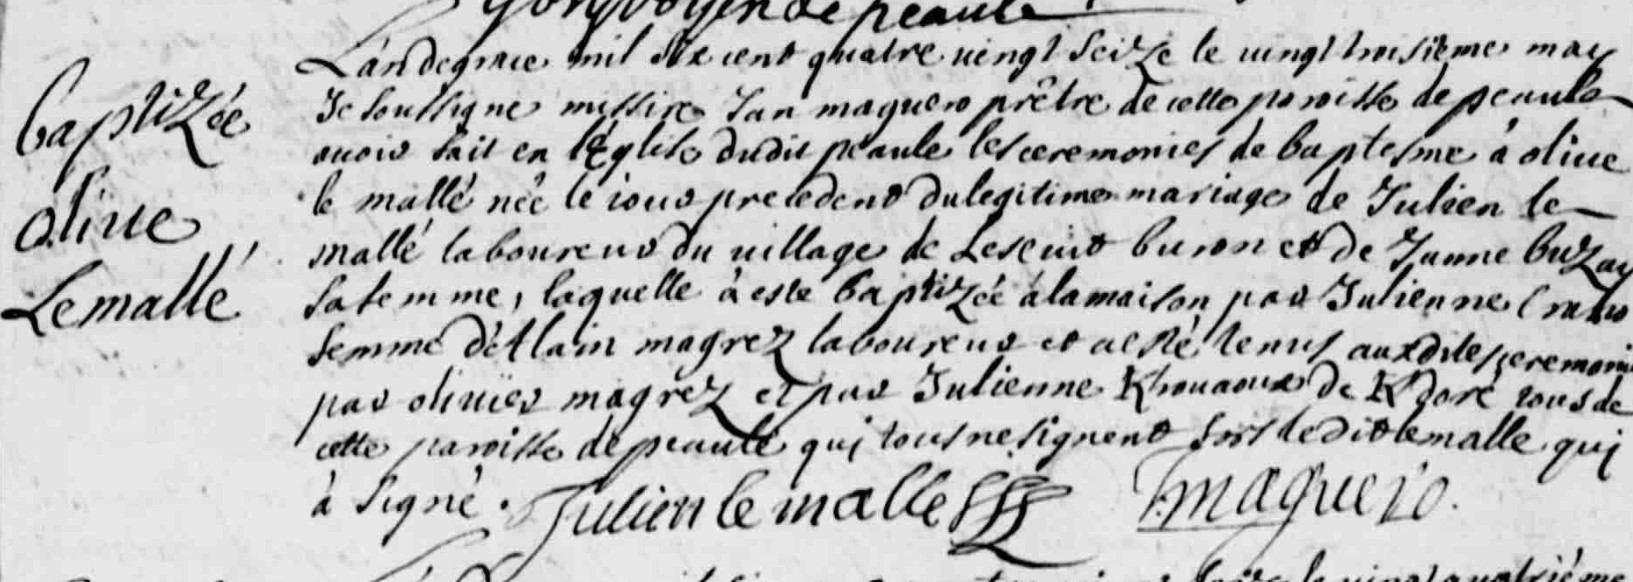 de peaule
L'an de grace mil six cent quatre vingt seize le vingt troisieme may
Je soussigné missire Jan maguero prêtre de cette paroisse de peaule
avoir fait en l'Eglise dudit peaule les ceremonies de baptesme à olive
le mallé née le jour precedent du legitime mariage de Julien le
mallé laboureur du village de buron et de Janne buzay
sa femme, laquelle à esté baptizée à la maison par Julienne
femme d'Alain magrez laboureur et a esté tenus auxdites ceremonies
par olivier magrez et par Julienne Khouaour de Kdoré tous de
cette paroisse de peaule qui tous ne signent fors ledit le mallé qui
à signé. Julien le malle maguero.
baptizée
olive
Le mallé